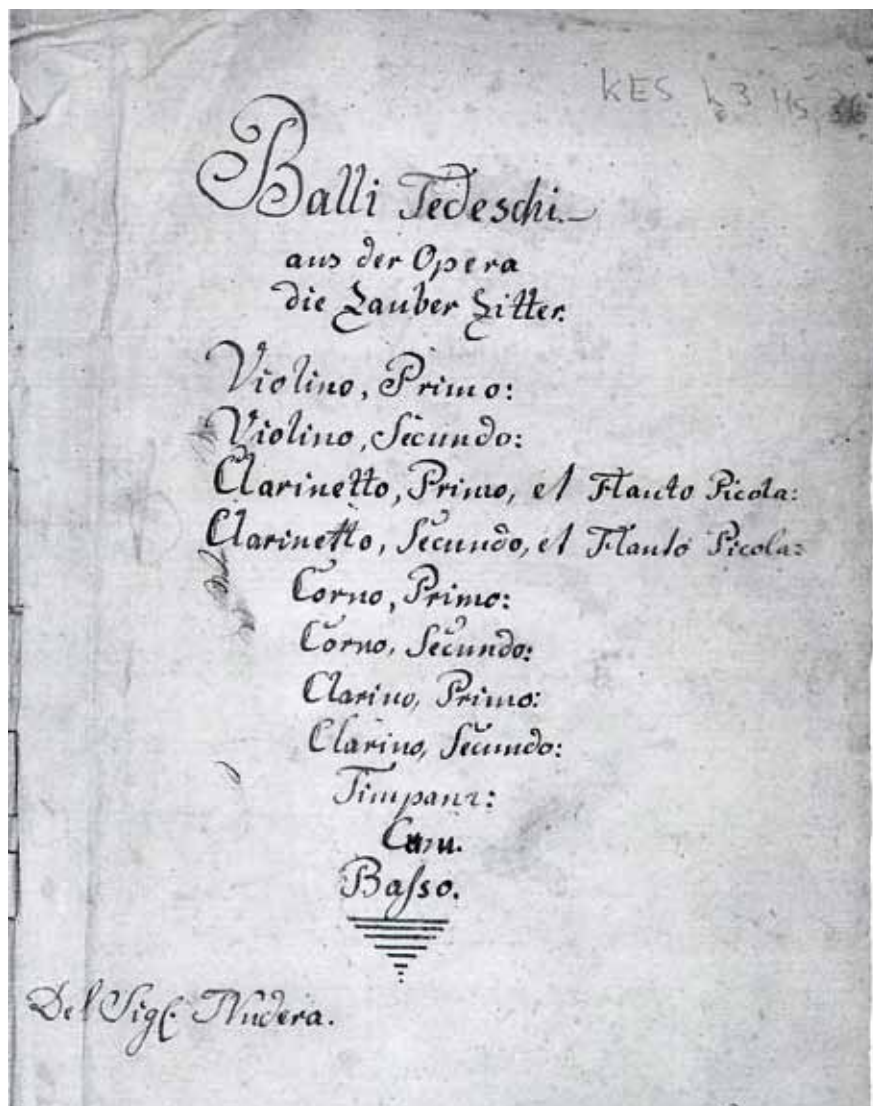 KES
Balli Tedeschi.
aus der Opera
die Zauber Zitter.
Violino, Primo:
Violino, Secundo:
Clarinetto, Primo, et Flauto Picola:
Clarinetto, Secundo, et Flauto Picola:
Corno, Primo:
Corno, Secundo:
Clarino, Primo:
Clarino, Secundo:
Timpani:
Cum.
Basso.
Del Sig: